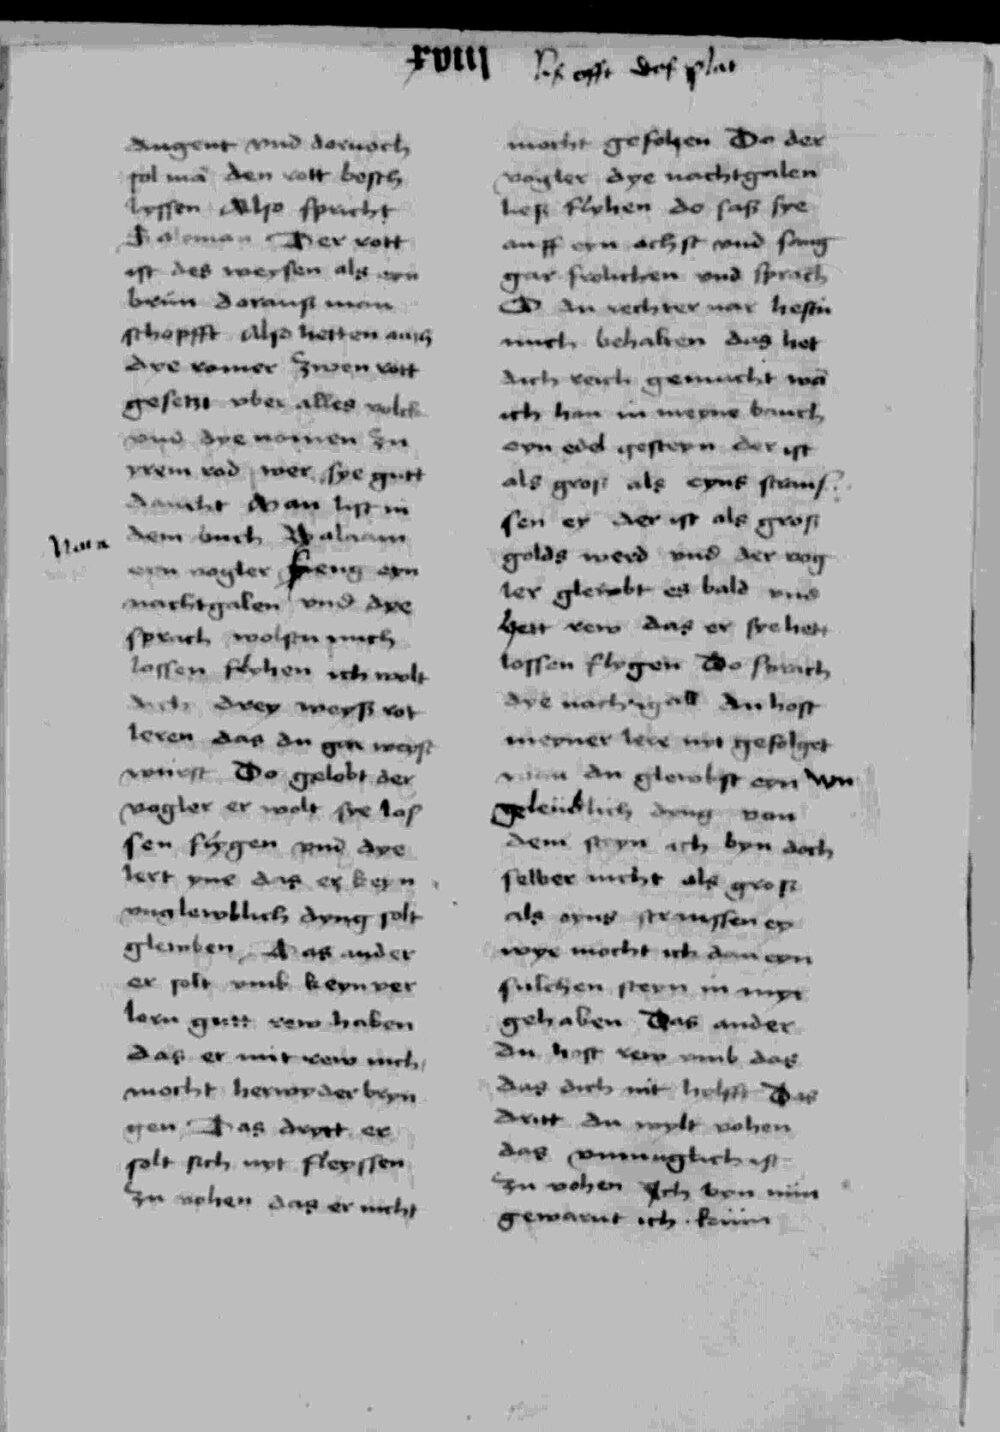 xviii lis offt des plat
dugent vnd dornoch
sol mā den rott besch
lyssen Also spricht
Salomon Der rott
ist des weysen als eyn
brūn dorauß man
schopfft Also hetten auch
dye romer zwen rott
gesetzt vber alles volck
vnd dye nomen zu
yrem rod wer sye gutt
daucht Man list in
dem buch Balaam
Nota
eyn vogler fieng eyn
nachtgalen vnd dye
sprach wolstu mich
lossen flyhen ich wolt
dich drey weyß rot
leren das du gar weyß
würst Do gelobt der
vogler er wolt sye los
sen flygen vnd dye
lert yne das er keyn
vnglewblich dyng solt
glewben Das ander
er solt vmb keyn ver
lorn gutt rew haben
das er mit rew nich
mocht herwyder bryn
gen Das drytt er
solt sich nyt fleyssen
zu vohen das er nicht
mocht gefolgen Do der
vogler dye nachtgalen
ließ flyhen do saß sye
auff eyn achst vnd sang
gar frolichen vnd sprach
O du rechter nar hestu
mich behalten das het
dich reich gemacht wā
ich han in meyne bauch
eyn edel gesteyn der ist
als groß als eyns strauß
sen ey der ist als groß
golds werd vnd der vog
ler glewbt es bald vnd
hett rew das er sye hett
lossen flygen Do sprach
dye nachtgall du host
meyner lere nyt gefolget
wan du glewbst eyn vn
gleüblich dyng von
dem steyn ich byn doch
selber nicht als groß
als eyns straussen ey
wye mocht ich dan eyn
sulchen steyn in myr
gehaben Das ander
du host rew vmb das
das dich nit helfft Das
dritt du wylt vohen
das vnmuglich ist
zu vohen Ich byn nün
gewarnt ich küm